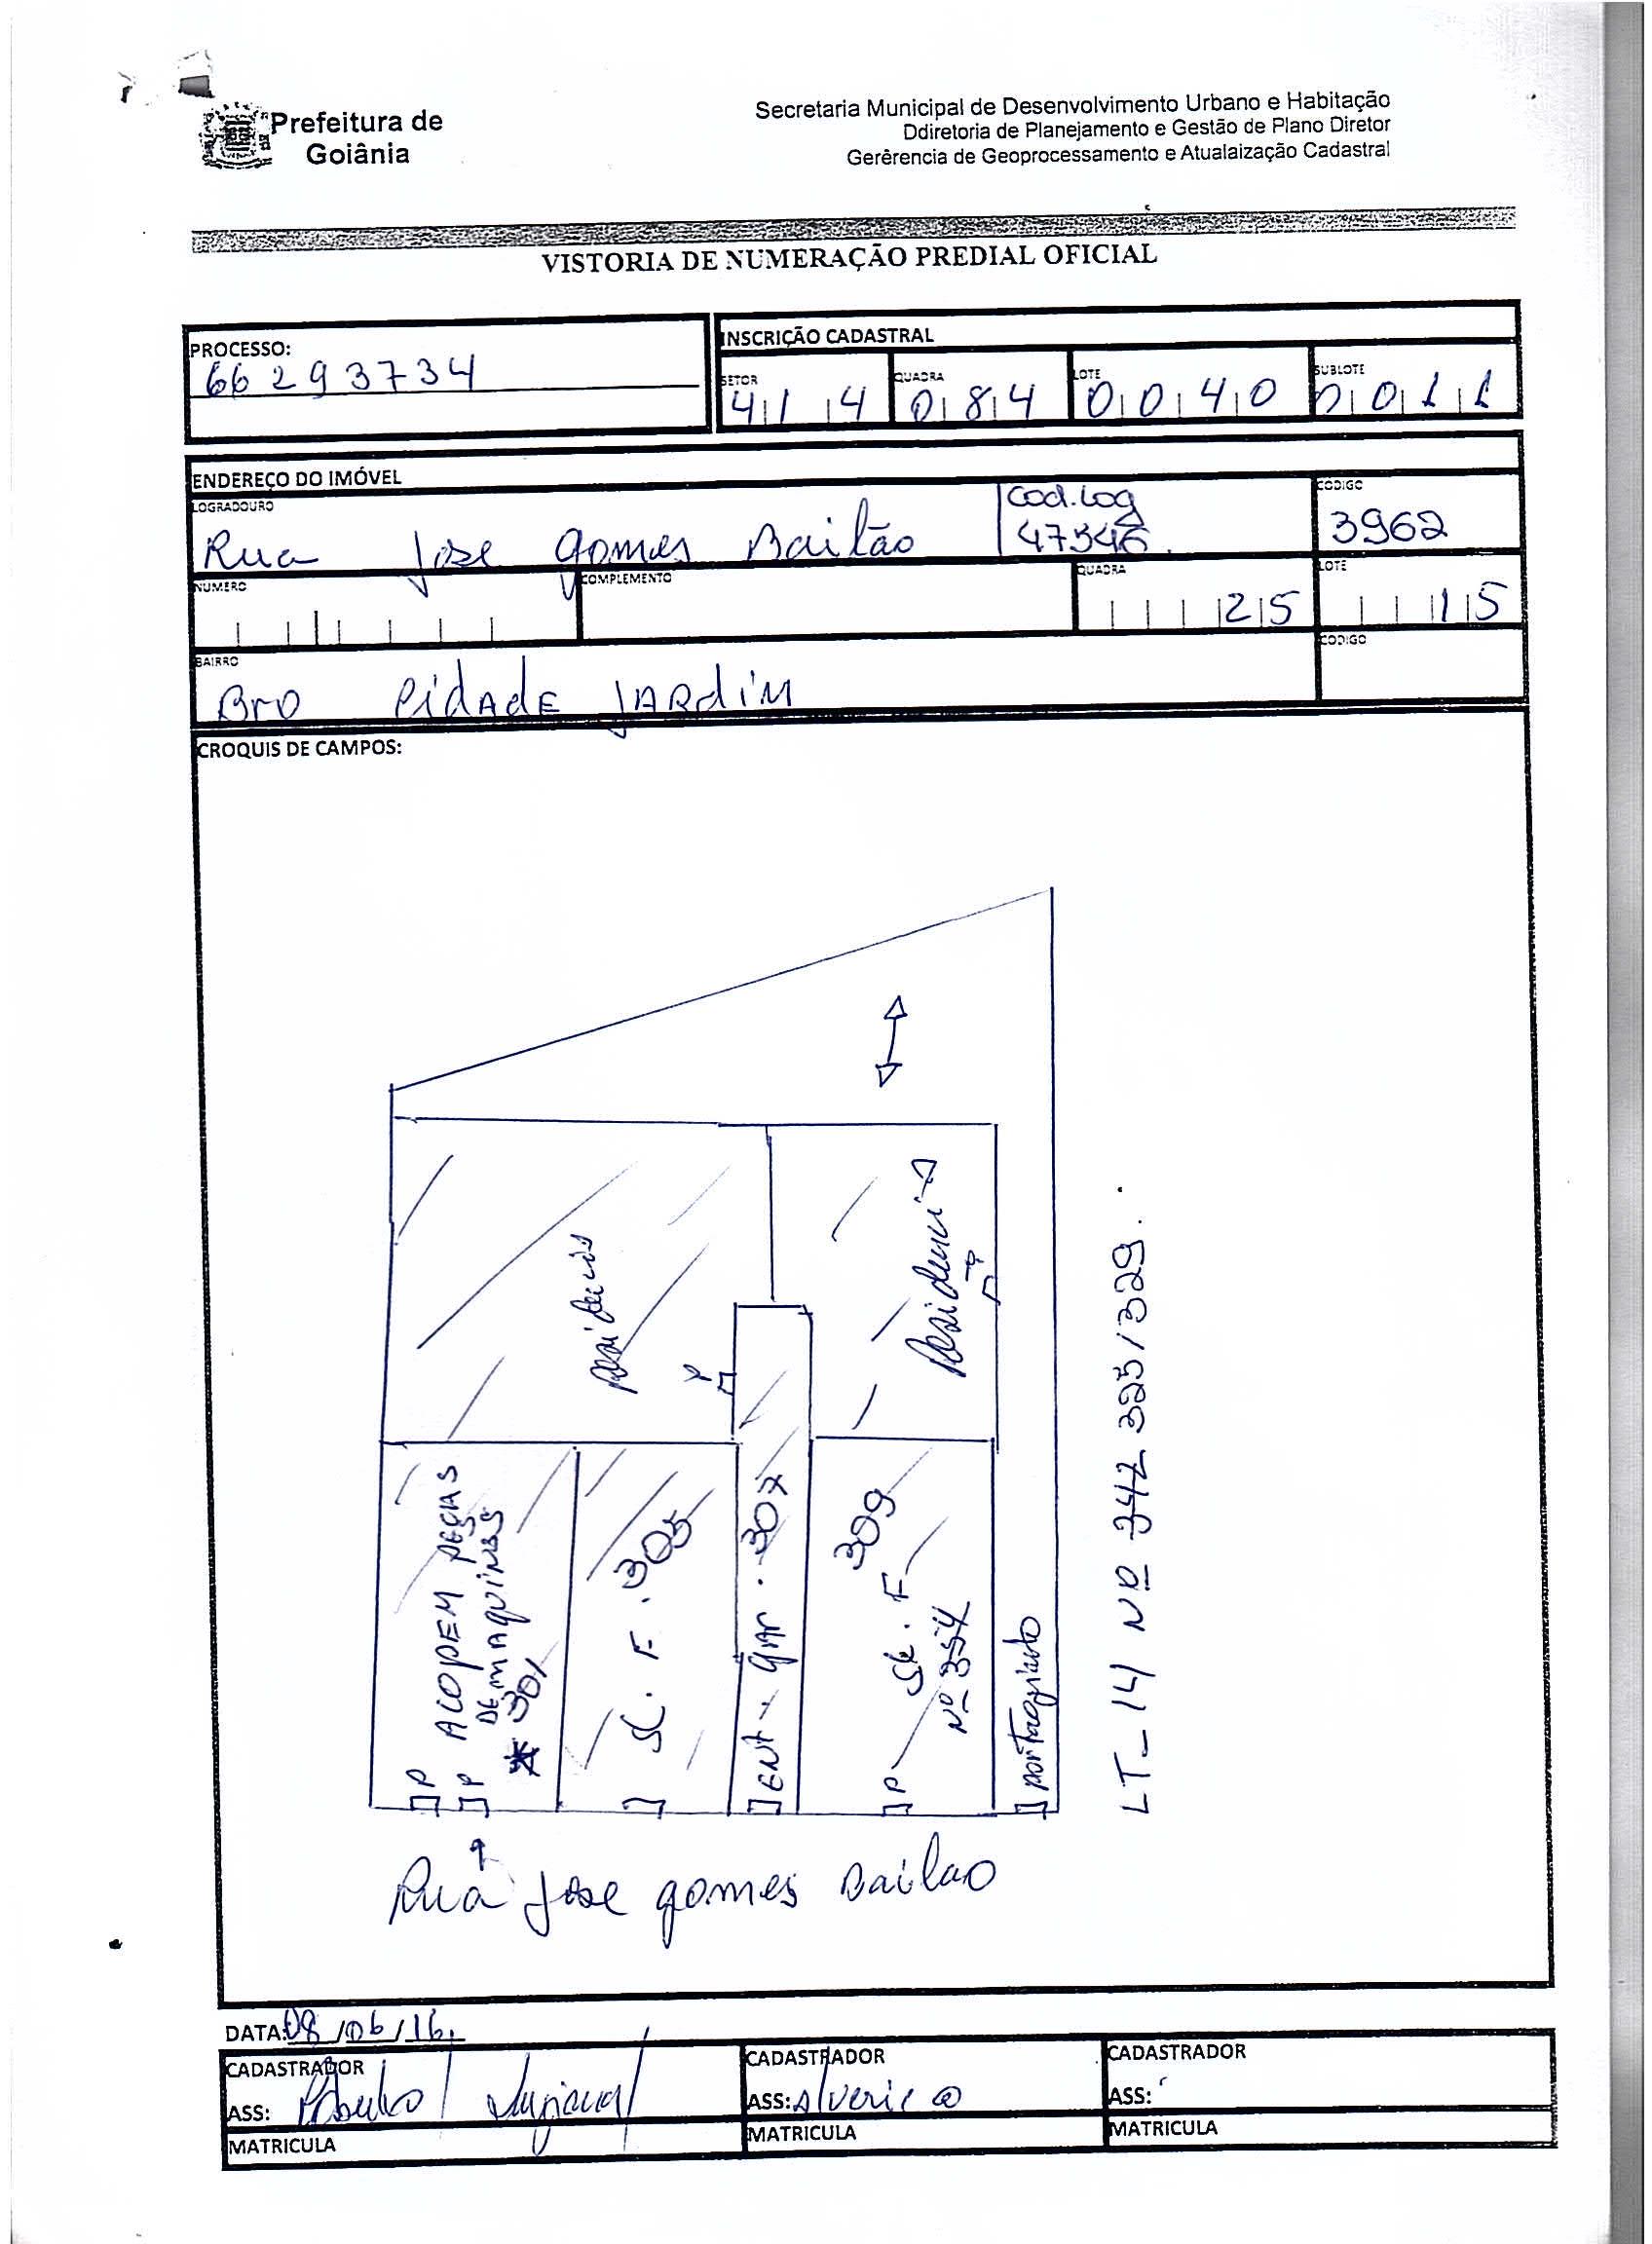 Prefeitura de
Goiânia
Secretaria Municipal de Desenvolvimento Urbano e Habitação
Ddiretoria de Planejamento e Gestão de Plano Diretor
Gerêrencia de Geoprocessamento e Atualaização Cadastral
VISTORIA DE NUMERAÇÃO PREDIAL OFICIAL
PROCESSO:
66293734
INSCRIÇÃO CADASTRAL
SETOR QUADRA LOTE SUBLOTE
414 084 0040 0011
ENDEREÇO DO IMÓVEL
LOGRADOURO
Rua Jose gomes Bailão
Cod.Log
47346.
CODIGO
3962
NUMERO
COMPLEMENTO
QUADRA
25
LOTE
15
BAIRRO
Bro Cidade JARdiM
CODIGO
CROQUIS DE CAMPOS:
Residencia
P
P
ACOPEM PEÇAS
DE MAQUINAS
* 301
P
P
SL. F. 305
ENt - gar. 307
309
SL. F
Nº 354
P
portagiato
LT - 14 Nº 342 325/329.
Rua Jose gomes Bailao
DATA: 08/06/16.
CADASTRADOR
ASS:
MATRICULA
CADASTRADOR
ASS: Alverico
MATRICULA
CADASTRADOR
ASS:
MATRICULA